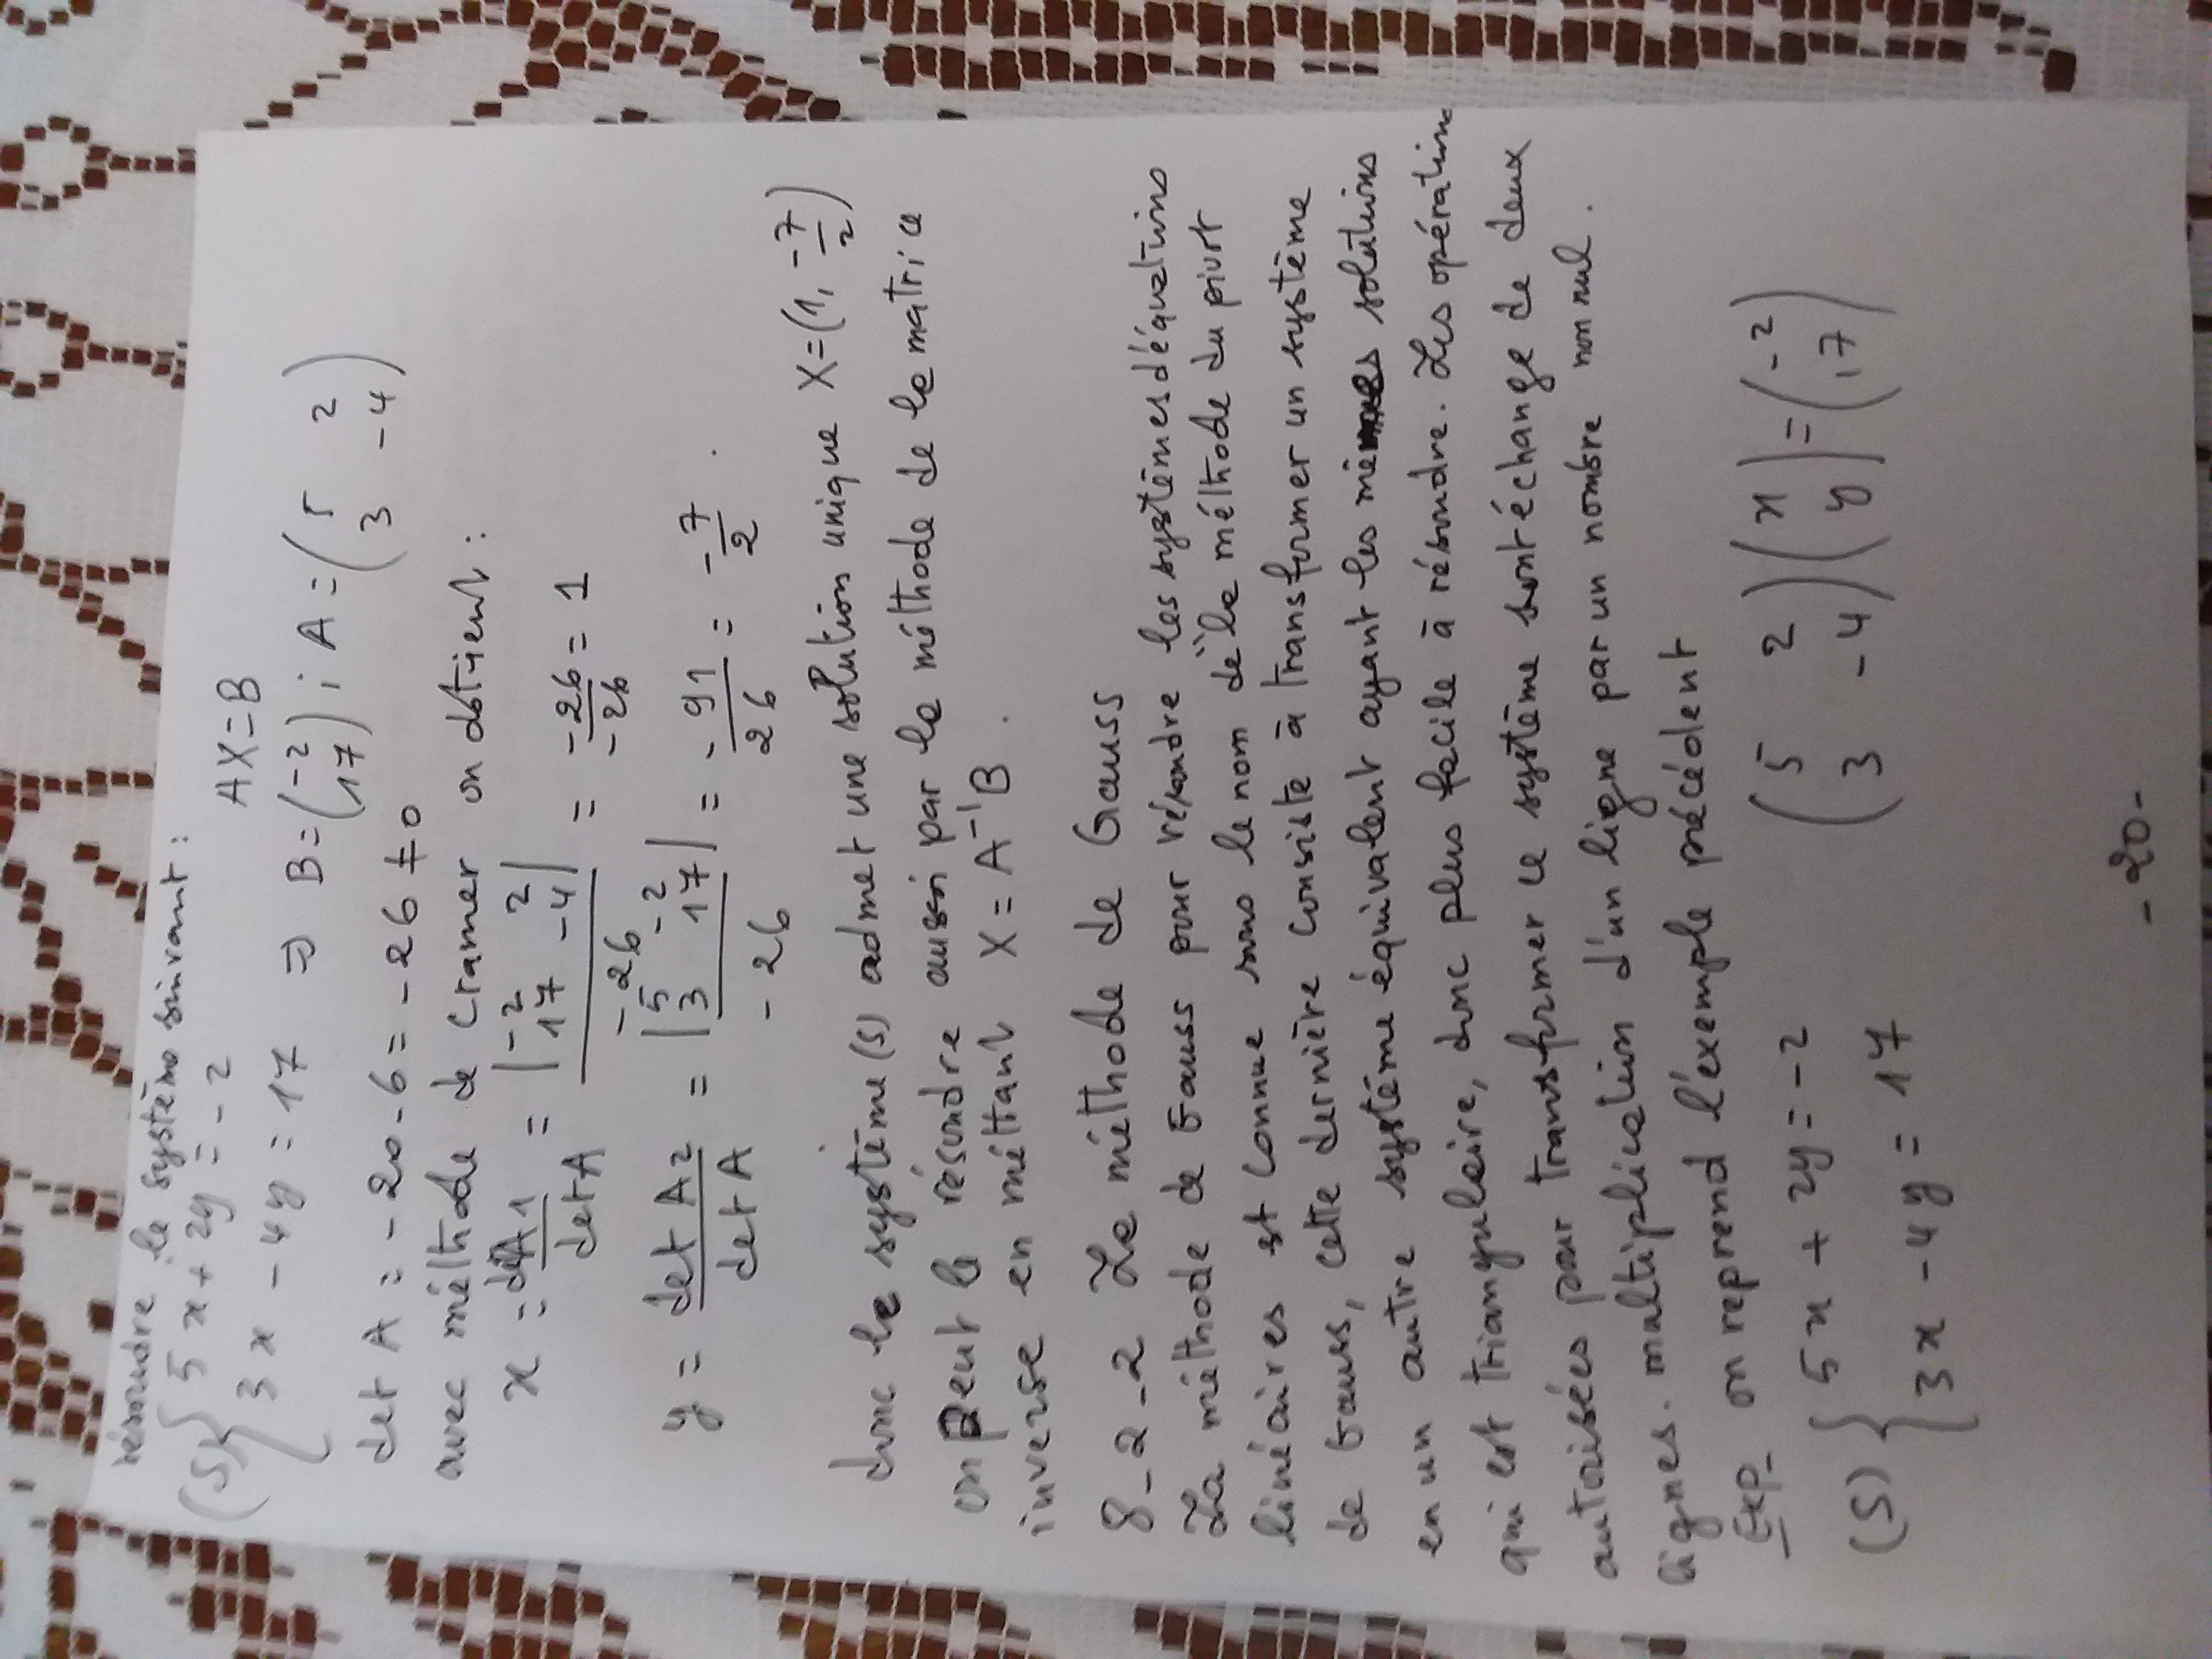 résoudre le système suivant :
(S) { 5x + 2y = -2    AX = B
3x - 4y = 17 ⇒ B = (-2 17) ; A = (5 2 3 -4)
det A = -20 - 6 = -26 ≠ 0
avec méthode de cramer on obtient :
x = det A1 / det A = |-2 2 17 -4| / -26 = -26 / -26 = 1
y = det A2 / det A = |5 -2 3 17| / -26 = -91 / 26 = -7/2 .
donc le système (S) admet une solution unique X = (1, -7/2)
on peut le résoudre aussi par la méthode de la matrice
inverse en méttant X = A⁻¹B .
8-2-2 La méthode de Gauss
La méthode de Gauss pour résoudre les systèmes d'équations
linéaires est connue sous le nom de la méthode du pivot
de Gauss, cette dernière consiste à transformer un système
en un autre système équivalent ayant les mêmes solutions
qui est triangulaire, donc plus facile à résoudre. Les opération
autorisées pour transformer ce système sont échange de deux
lignes. multiplication d'un ligne par un nombre non nul.
Exp- on reprend l'exemple précédent
(S) { 5x + 2y = -2    (5 2 3 -4) (x y) = (-2 17)
3x - 4y = 17
- 20 -